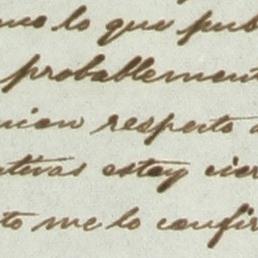 mo lo que pub
probablement
nion respecto a
ativas estoy cier
to me lo confir